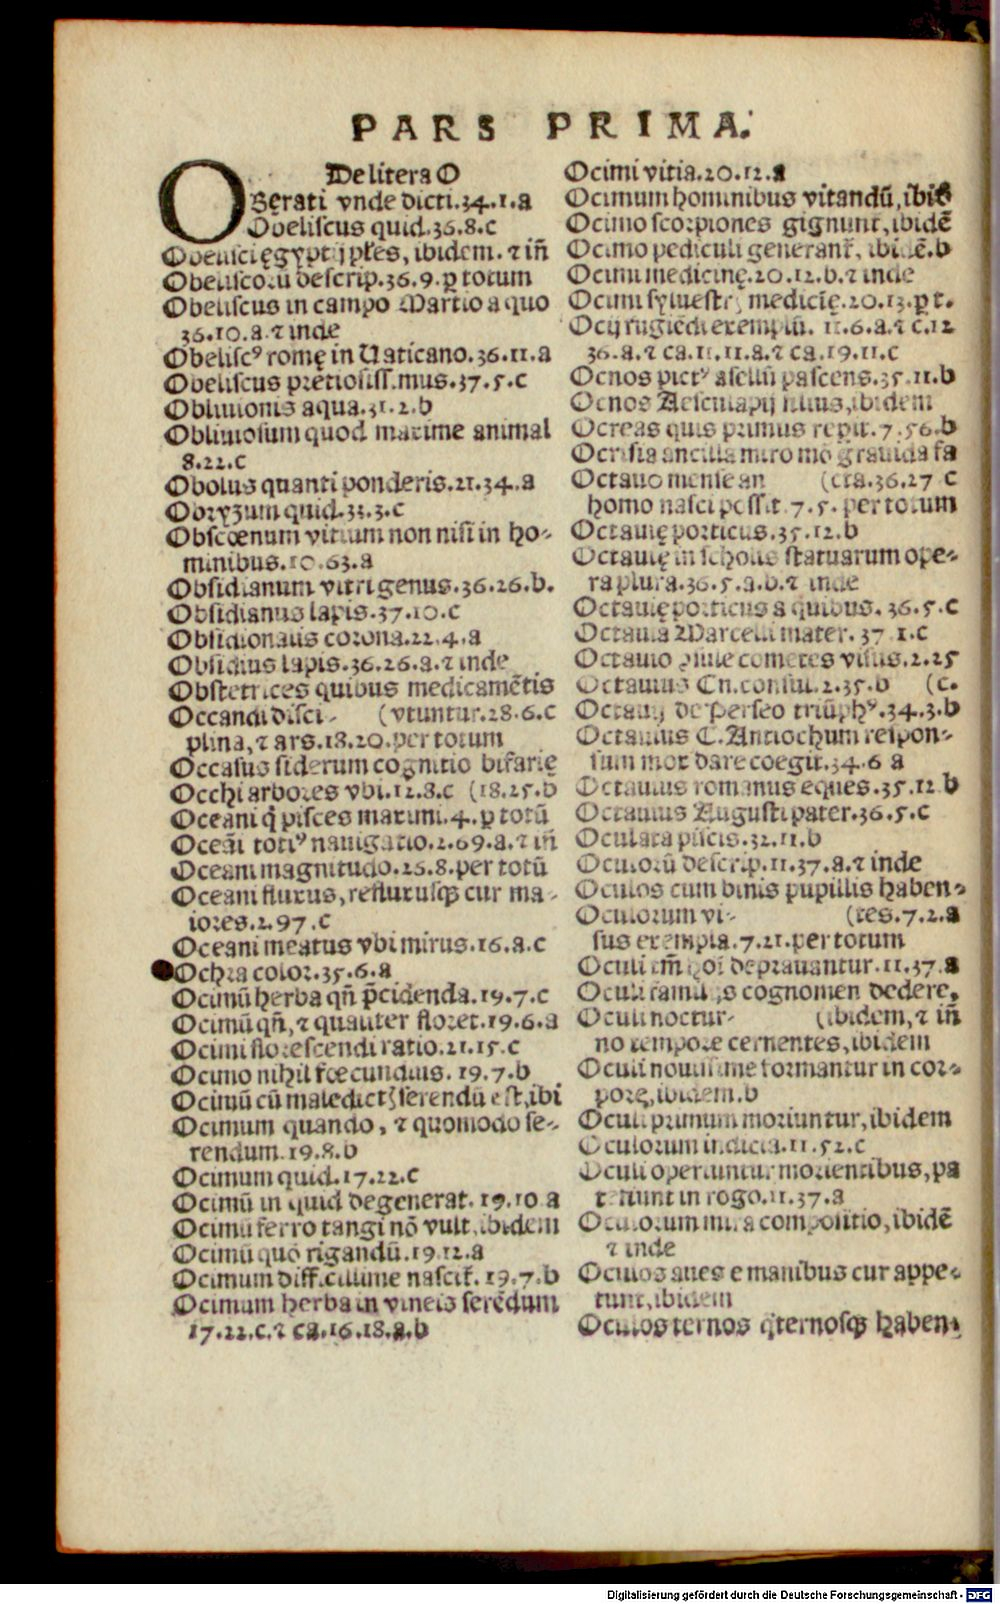 PARS PRIMA.
De litera O
OBęrati vnde dicti.34.1.a
Obeliscus quid.36.8.c
Obelisci ęgyptij plẽs, ibidem.⁊ iñ
Obeliscorũ descrip.36.9.ꝑ totum
Obeliscus in campo Martio a quo
36.10.a.⁊ inde
Obeliscꝰ romę in Vaticano.36.11.a
Obeliscus pretiosissimus.37.5.c
Obliuionis aqua.31.2.b
Obliuiosum quod maxime animal
8.22.c
Obolus quanti ponderis.21.34.a
Obryzum quid.33.3.c
Obscœnum vitium non nisi in ho-
minibus.10.63.a
Obsidianum vitri genus.36.26.b.
Obsidianus lapis.37.10.c
Obsidionalis corona.22.4.a
Obsidius lapis.36.26.a.⁊ inde
Obstetrices quibus medicamẽtis
Occandi disci- (vtuntur.28.6.c
plina,⁊ ars.18.20.per totum
Occasus siderum cognitio bifarię
Occhi arbores vbi.12.8.c (18.25.b
Oceani q̃ pisces maximi.4.ꝑ totũ
Oceãi totiꝰ nauigatio.2.69.a.⁊ iñ
Oceani magnitudo.26.8.per totũ
Oceani fluxus, refluxusqꝫ cur ma-
iores.2.97.c
Oceani meatus vbi mirus.16.a.c
Ochra color.35.6.a
Ocimũ herba qñ p̃cidenda.19.7.c
Ocimũ qñ,⁊ qualiter floret.19.6.a
Ocimi florescendi ratio.21.15.c
Ocimo nihil fœcundius. 19.7.b
Ocimũ cũ maledictꝭ serendũ est,ibi
Ocimum quando, ⁊ quomodo se-
rendum.19.8.b
Ocimum quid.17.22.c
Ocimũ in quid degenerat. 19.10 a
Ocimũ ferro tangi nõ vult, ibidem
Ocimũ quõ rigandũ.19.12.a
Ocimum difficillime nascit̃. 19.7.b
Ocimum herba in vineis serẽdum
17.22.c.⁊ ca.16.18.a.b
Ocimi vitia.20.12.a
Ocimum hominibus vitandũ, ibiẽ
Ocimo scorpiones gignunt, ibidẽ
Ocimo pediculi generant̃, ibidẽ.b
Ocimi medicinę.20.12.b.⁊ inde
Ocimi syluestrꝭ medicię.20.13.ꝑ t.
Ocij fugiẽdi exemplũ. 11.6.a.⁊ c.12
36.a.⁊ ca.11.11.a.⁊ ca.19.11.c
Ocnos pictꝰ asellũ pascens.35.11.b
Ocnos Aesculapij filius, ibidem
Ocreas quis primus repit.7.56.b
Ocrisia ancilla miro mõ grauida fa
Octauo mense an (cta.36.27 c
homo nasci possit.7.5.per totum
Octauię porticus.35.12.b
Octauię in scholis statuarum ope-
ra plura.36.5.a.b.⁊ inde
Octauię porticus a quibus. 36.5.c
Octauia Marcelli mater. 37 1.c
Octauio cometes visus.2.25
Octauius Cn.consul.2.35.b (c.
Octauij de Perseo triũphꝰ.34.3.b
Octauius C.Antiochum respon-
sum mox dare coegit.34.6 a
Octauius romanus eques.35.12 b
Octauius Augusti pater.36.5.c
Oculata piscis.32.11.b
Oculorũ descrip.11.37.a.⁊ inde
Oculos cum binis pupillis haben-
Oculorum vi- (tes.7.2.a
sus exempla.7.21.per totum
Oculi deprauantur.11.37.a
Oculi familijs cognomen dedere,
Oculi noctur- (ibidem,⁊ iñ
no tempore cernentes, ibidem
Oculi nouissime formantur in cor-
porę, ibidem.b
Oculi primum moriuntur, ibidem
Oculorum indicia.11.52.c
Oculi operiuntur morientibus, pa
tefiunt in rogo.11.37.a
Oculorum mira compositio, ibidẽ
⁊ inde
Oculos aues e manibus cur appe-
tunt, ibidem
Oculos ternos q̃ternosqꝫ haben-
Digitalisierung gefördert durch die Deutsche Forschungsgemeinschaft - DFG